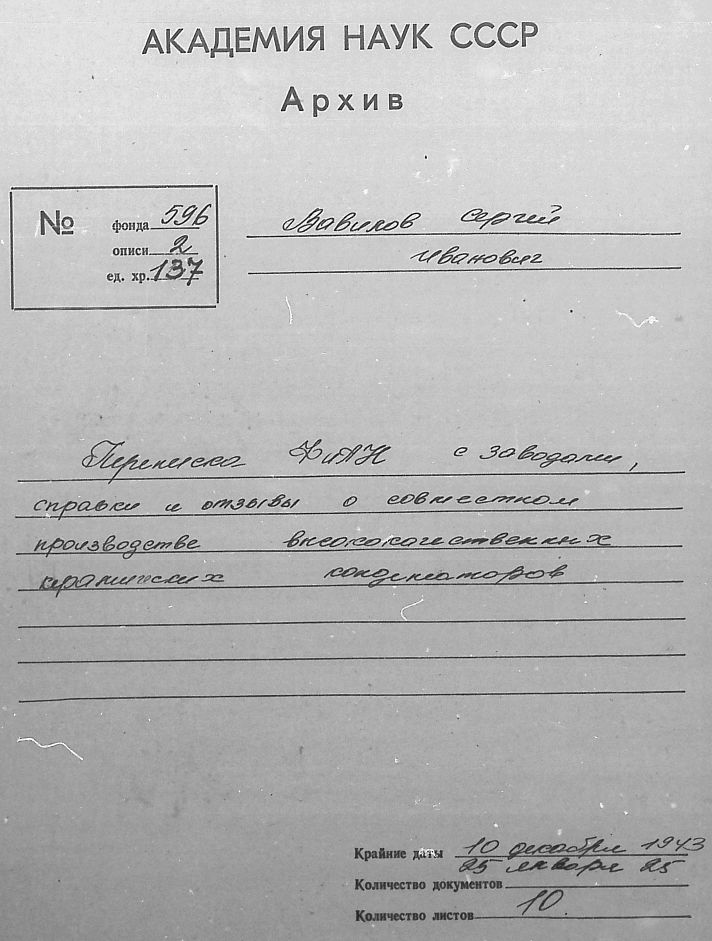 АКАДЕМИЯ НАУК СССР
Архив
№ фонда 596
описи 2
ед. хр. 137
Вавилов Сергей
Иванович
Переписка ФИАН с заводами,
справки и отзывы о совместном
производстве высококачественных
керамических конденсаторов
Крайние даты 10 декабря 1943
25 января 25
Количество документов
Количество листов 10